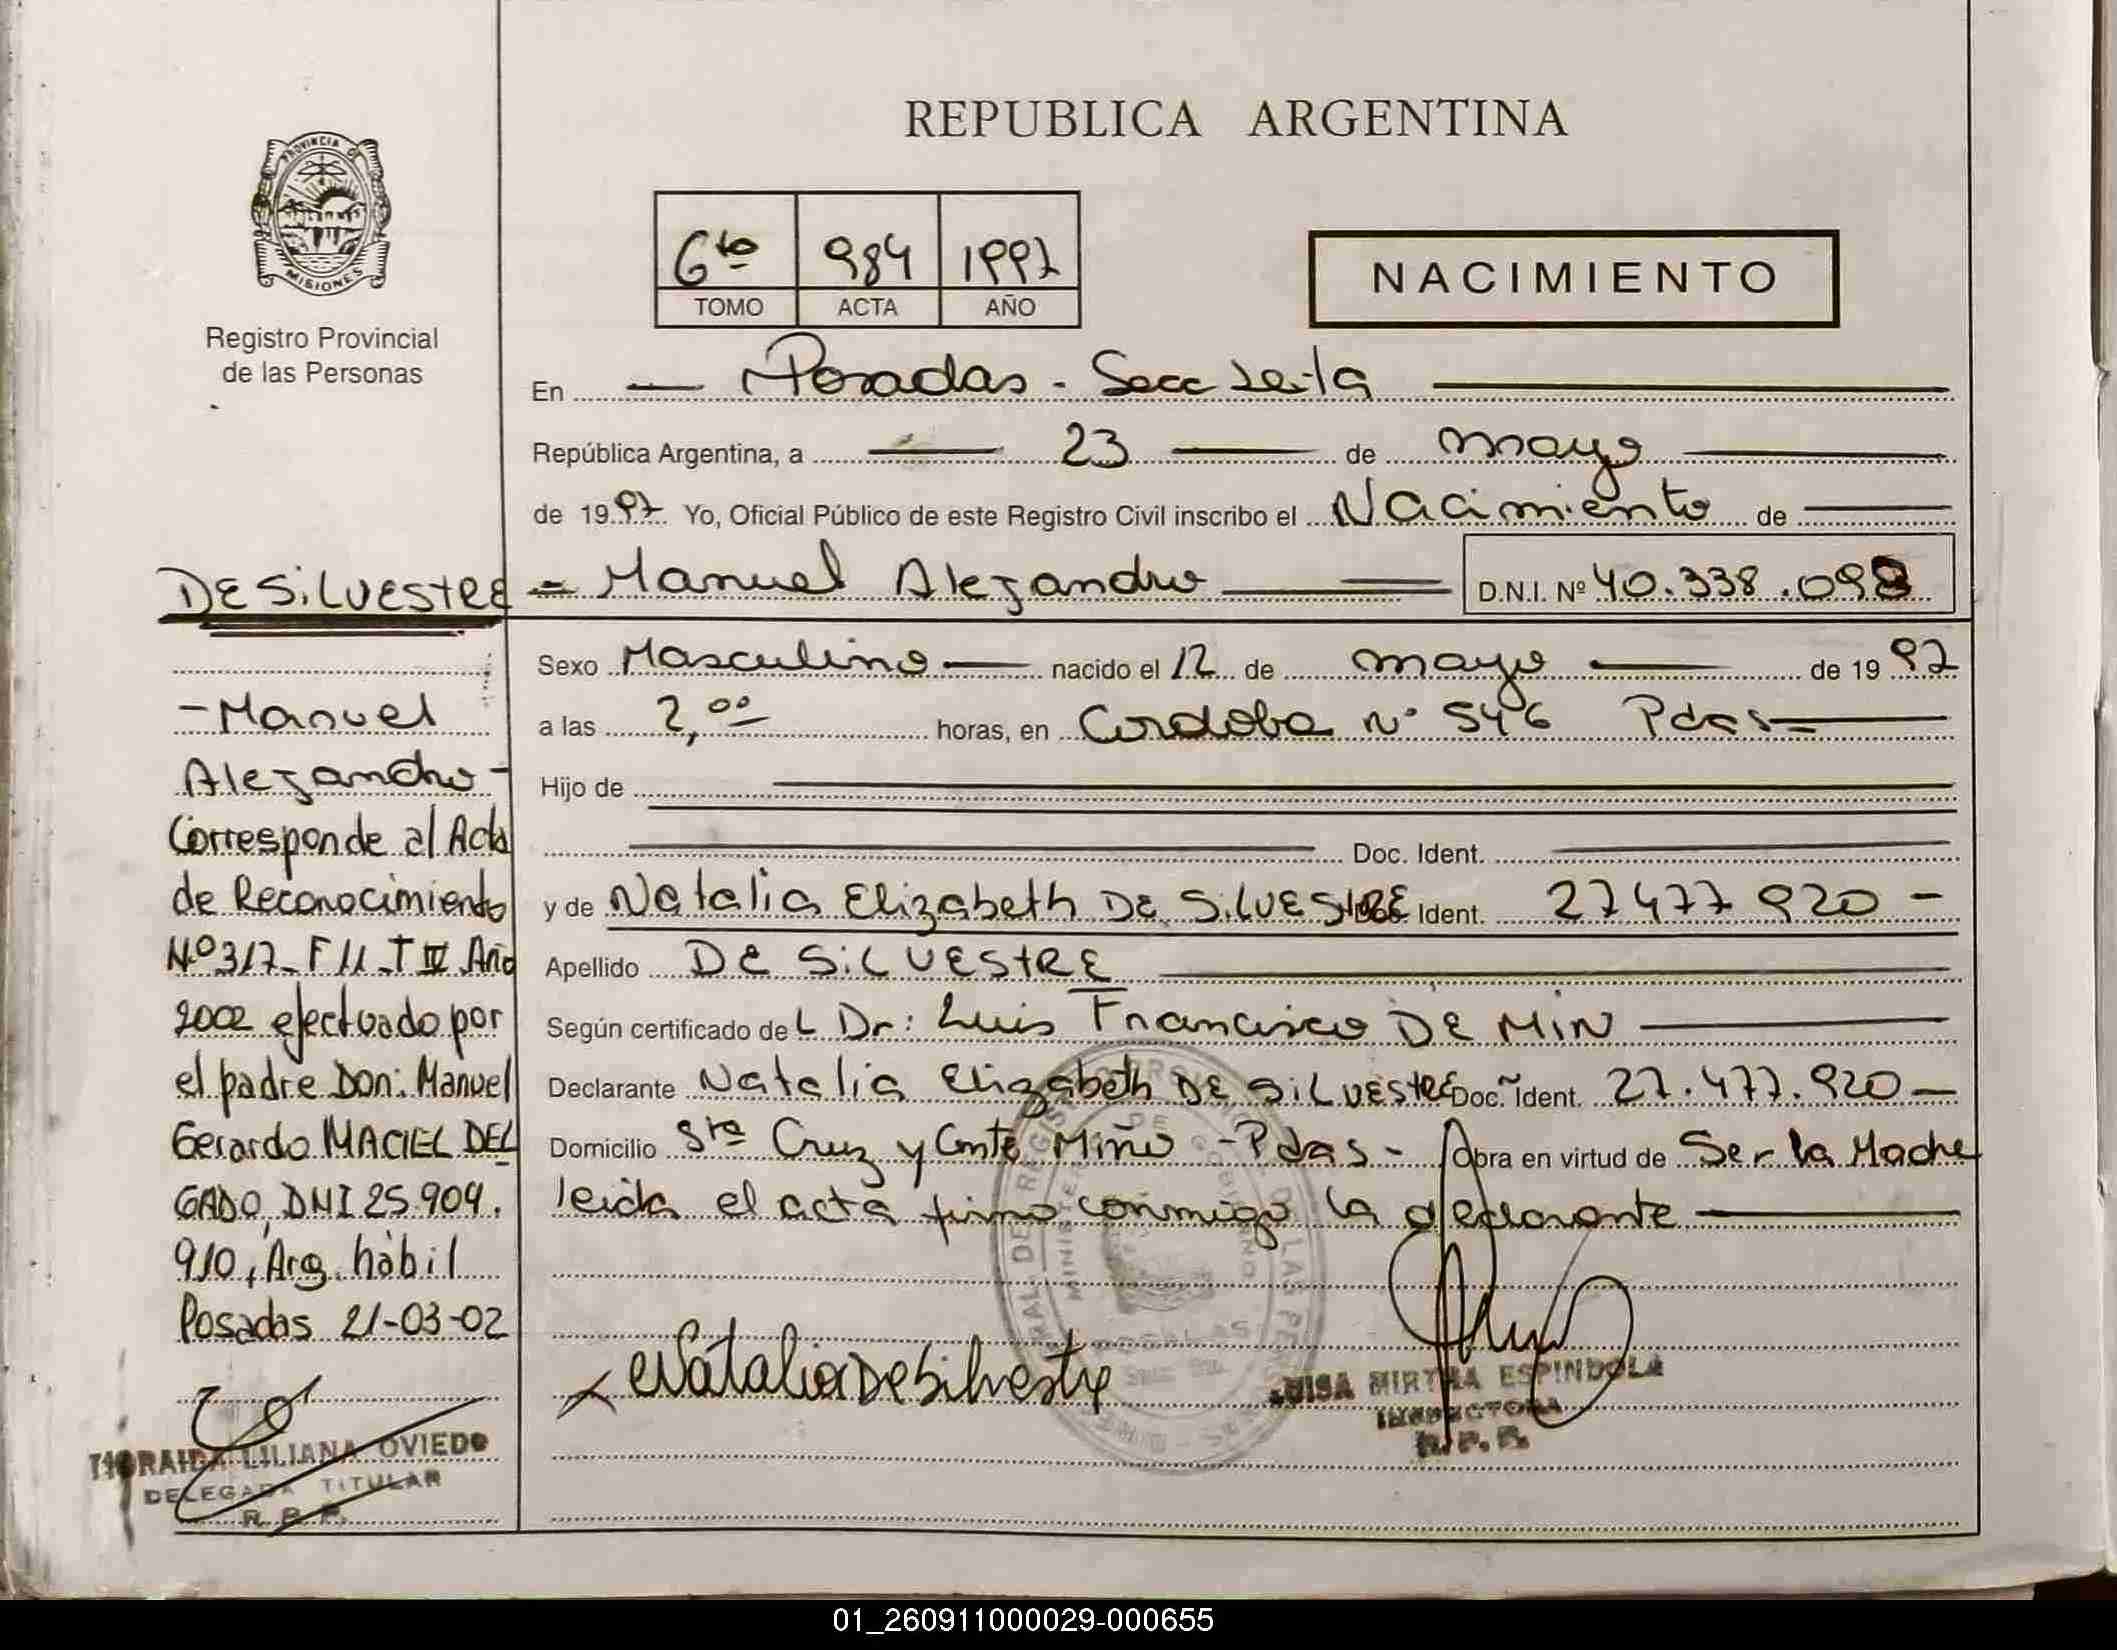 REPUBLICA ARGENTINA
PROVINCIA DE
MISIONES
Registro Provincial
de las Personas
6to 984 1997
TOMO ACTA AÑO
NACIMIENTO
En Posadas - Secc Sexta
República Argentina, a 23 de mayo
de 1997 Yo, Oficial Público de este Registro Civil inscribo el Nacimiento de
Manuel Alejandro D.N.I. Nº 40.338.098
Sexo Masculino nacido el 12 de mayo de 1997
a las 2,00 horas, en Cordoba Nº 546 Pdas
Hijo de
Doc. Ident.
y de Natalia Elizabeth DE SiLVEStRE Ident. 27477920 -
Apellido DE SiLVEStRE
Según certificado del Dr: Luis Francisco DE MIN
Declarante Natalia Elizabeth DE SiLVEStRE Doc. Ident. 27.477.920 -
Domicilio Sta Cruz y Cnte Miño - Pdas - Obra en virtud de Ser la Madre
leida el acta firma conmigo la declarante
Natalia De Silvestre
LUISA MIRTHA ESPINDOLA
INSPECTORA
R. P. P.
DE SiLVEStRE
- Manuel
Alejandro -
Corresponde al Acta
de Reconocimiento
Nº 317 - F 11 - T IV Año
2002 efectuado por
el padre Don: Manuel
Gerardo MACIEL DEL
GADO, DNI 25.904.
910, Arg. hábil
Posadas 21-03-02
LILIANA OVIEDO
DELEGADA TITULAR
R. P. P.
01_260911000029-000655